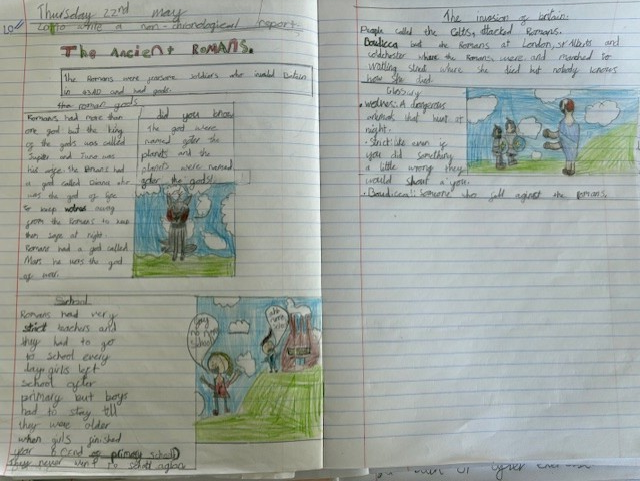 Thursday 22nd May
LO: to write a non-chronological report
The Ancient Romans.
The Romans were fearsome soldiers who invaded Britain
in 43AD and had gods.
the roman gods
Romans had more than
one god but the king
of the gods was called
Jupiter and Juno was
his wife. the Romans had
a god called
was the god of fire
to keep wolves away
from the Romans to keep
them safe at night.
Romans had a god called
Mars he was the god
of war.
did you know
The god were
named after the
planets and the
planets were named
after the gods!
School
Romans had very
strict teachers and
they had to go
to school every
day. girls left
school after
primary but boys
had to stay till
they were older
when girls finished
year of primary school
They never went to school again
The invasion of britain.
People called the Celts, attacked Romans.
Boudicca beat the Romans at London, St Albans and
colchester where the Romans were and marched to
watling street where she died but nobody knows
how she died.
Glossary
wolves: A dangerous
animals that hunt at
night.
Strict: like even if
you did something
a little wrong they
would shout a you.
Boudicca: Someone who against the Romans.